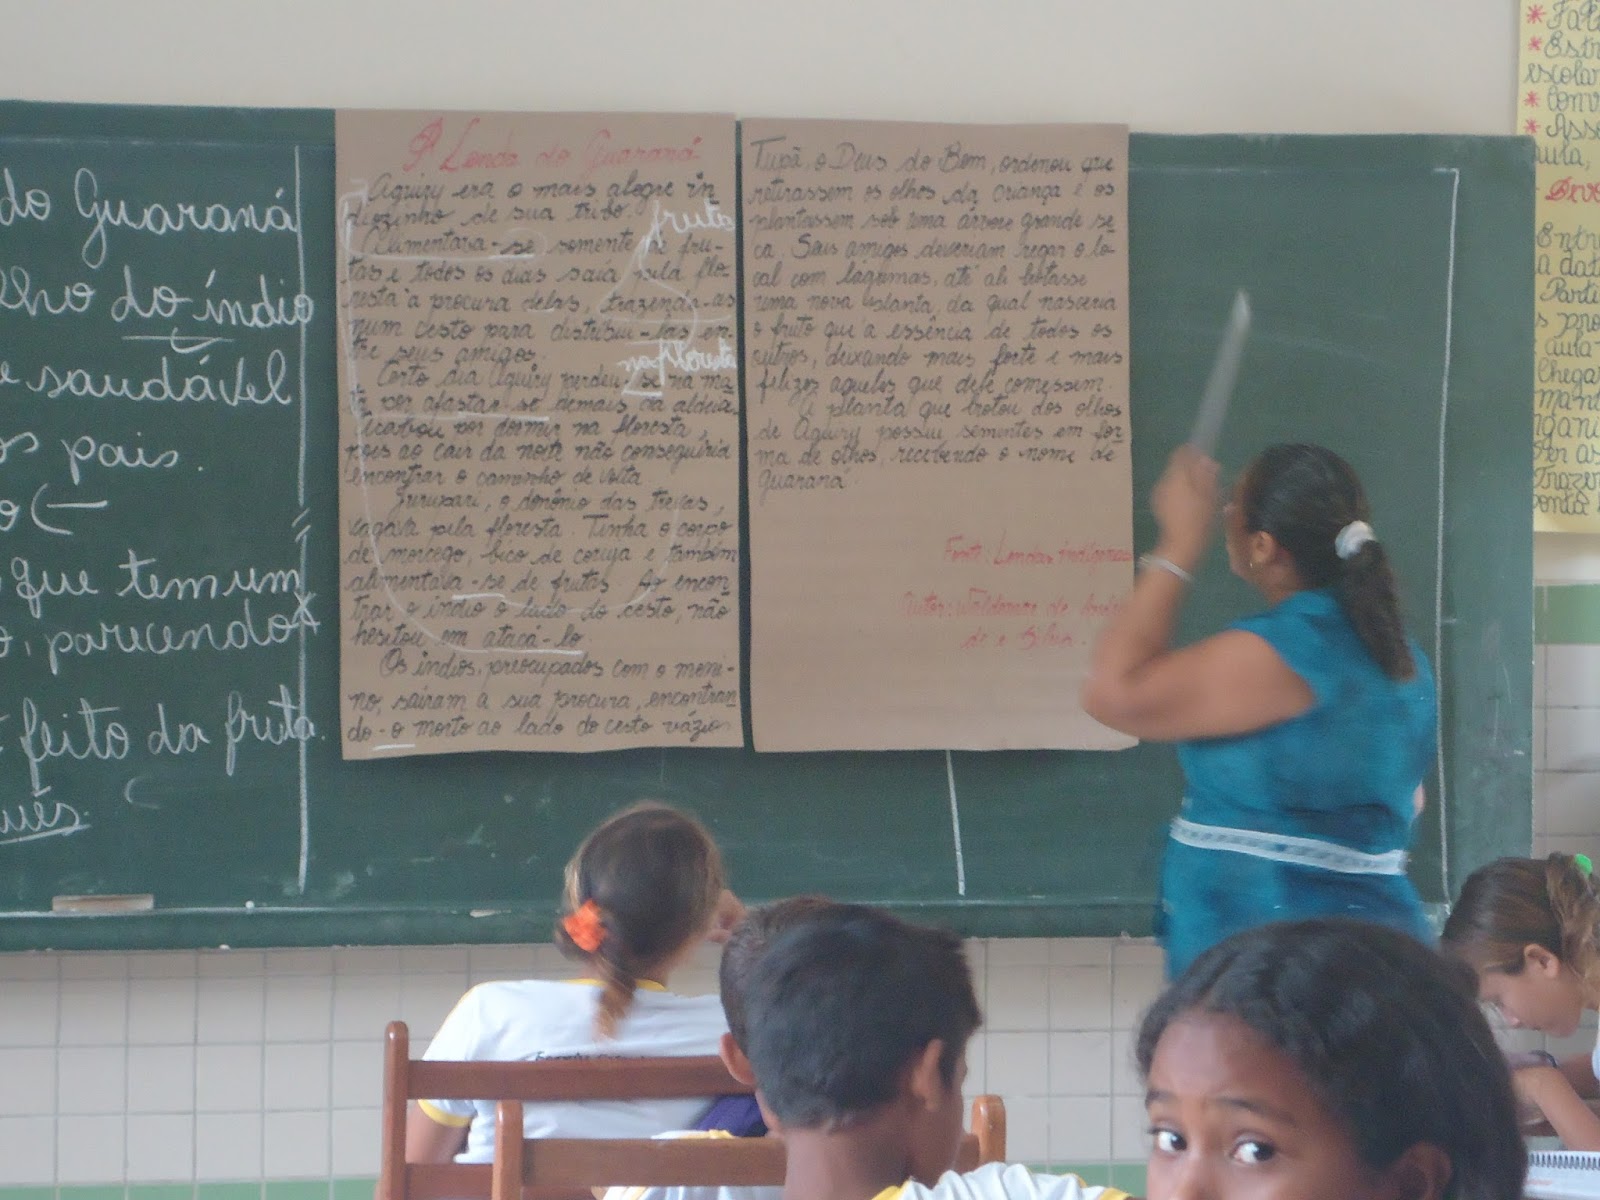 do Guaraná
lho do índio
e saudável
os pais.
que tem um
o, parecendo
feito da fruta.
uês.
A Lenda do Guaraná
Aguiry era o mais alegre in
diozinho de sua tribo.
Alimentava-se somente de fru-
tas e todos os dias saía pela flo-
resta à procura delas, trazendo-as
num cesto para distribuí-las en-
tre seus amigos.
Certo dia Aguiry perdeu-se na ma
ta por afastar-se demais da aldeia.
Acabou por dormir na floresta,
pois ao cair da noite não conseguiria
encontrar o caminho de volta.
Jurupari, o demônio das trevas,
vagava pela floresta. Tinha o corpo
de morcego, bico de coruja e também
alimentava-se de frutas. Ao encon
trar o índio o lado do cesto, não
hesitou em atacá-lo.
Os índios, preocupados com o meni-
no, saíram à sua procura, encontran
do-o morto ao lado do cesto vazio.
frutas
floresta
Tupã, o Deus do Bem, ordenou que
retirassem os olhos da criança e os
plantassem sob uma árvore grande se
ca. Seus amigos deveriam regar o lo-
cal com lágrimas, até ali brotasse
uma nova planta, da qual nasceria
o fruto que a essência de todos os
outros, deixando mais forte e mais
felizes aqueles que dele comessem.
A planta que brotou dos olhos
de Aguiry possui sementes em for
ma de olhos, recebendo o nome de
Guaraná.
Fonte: Lendas indígenas
Autor: Waldemar de Andra
de e Silva.
escolar
aula,
Entre
a data
Parti
aula
Chegar
mant
Trazer